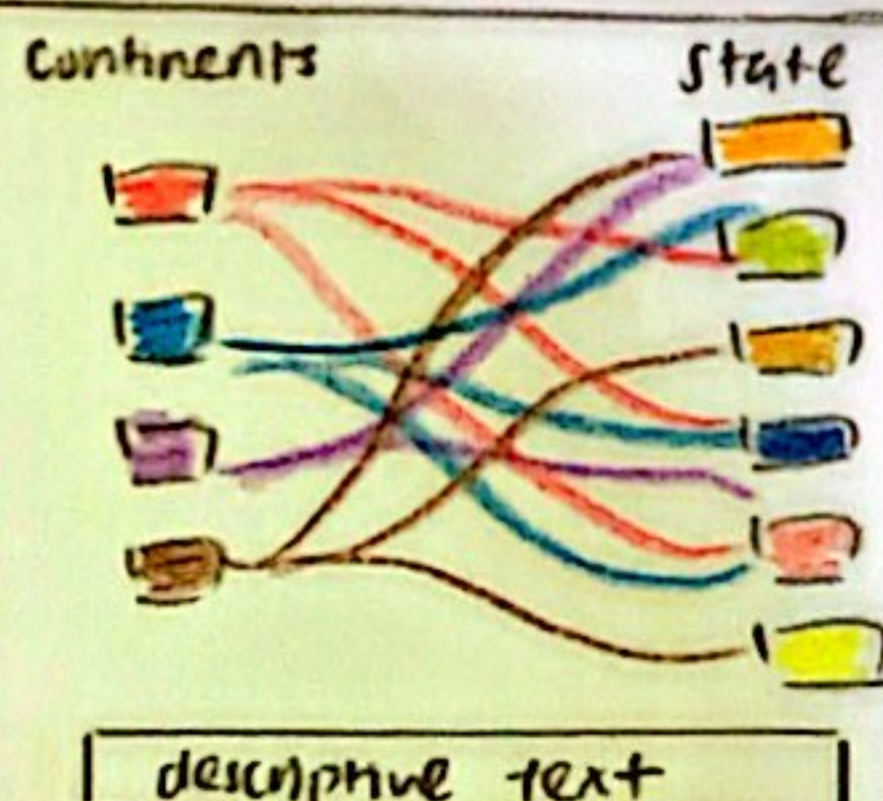 Continents State
descriptive text